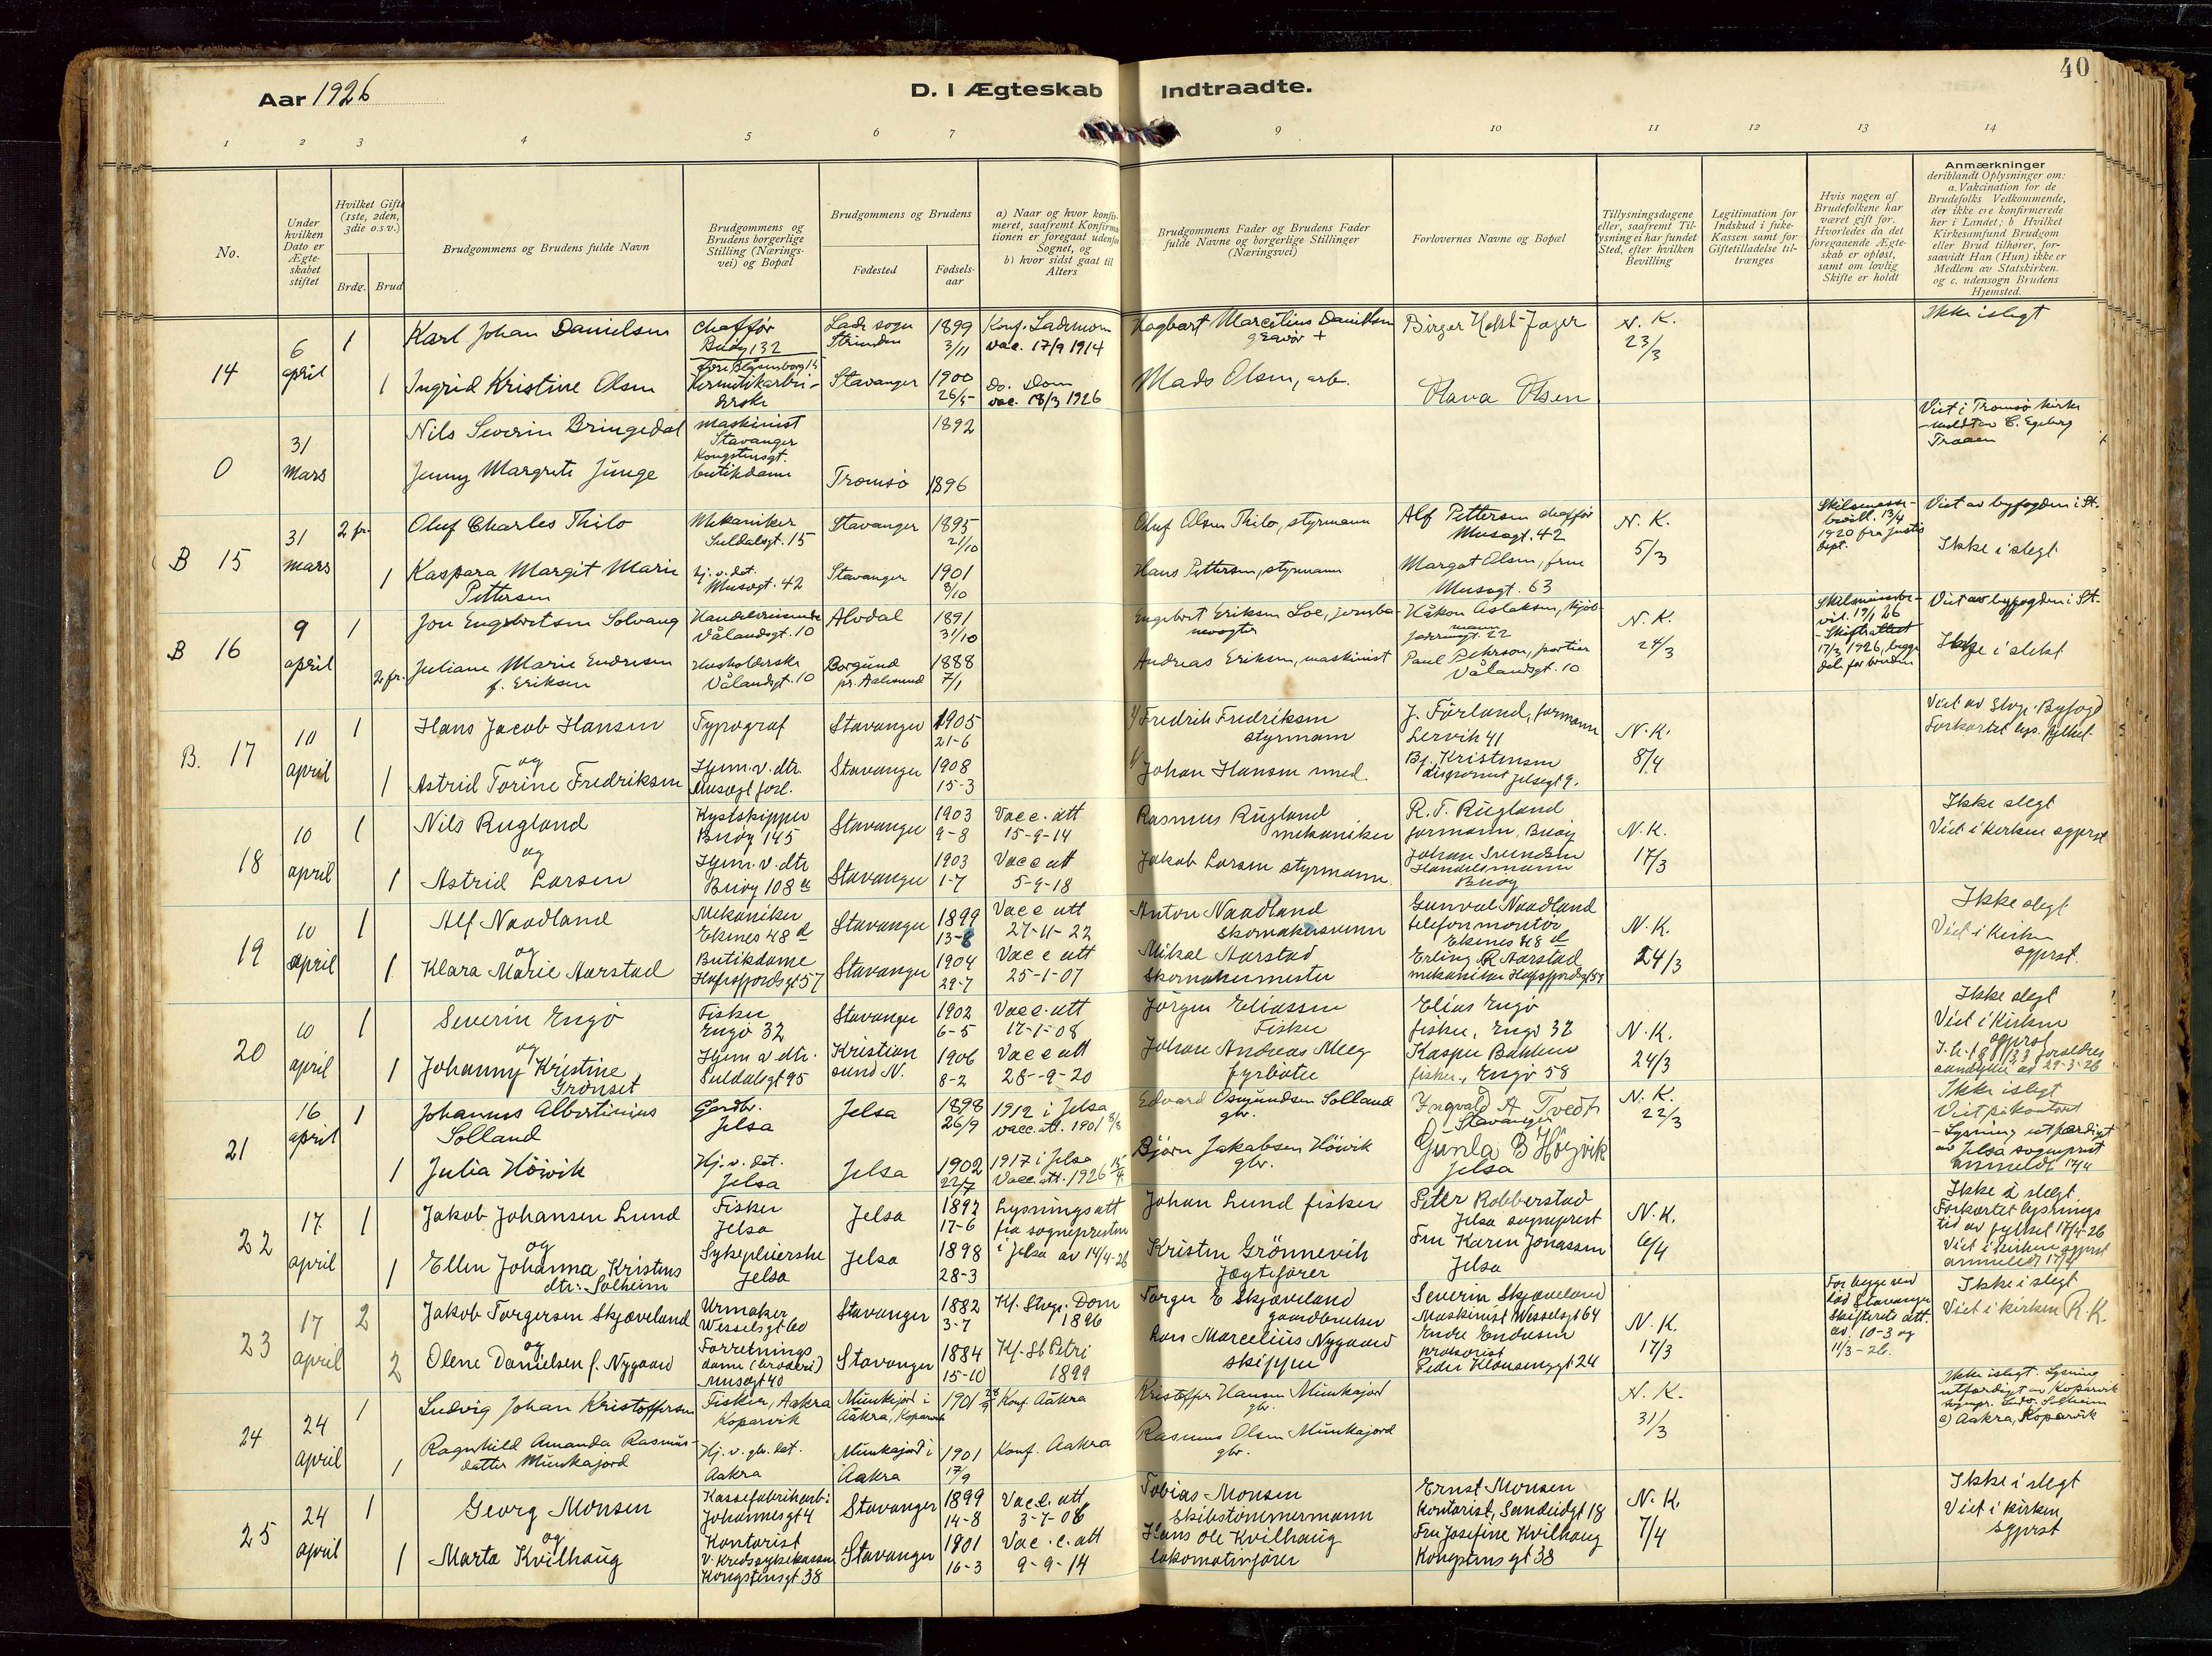 40
Aar 1926
D. I Ægteskab Indtraadte.
1 2 3 4 5 6 7 9 10 11 12 13 14
No.
Under hvilken Dato er Ægteskabet stiftet
Hvilket Gifte (1ste, 2den, 3die o.s.v.)
Brdg. Brud
Brudgommens og Brudens fulde Navn
Brudgommens og Brudens borgerlige Stilling (Næringsvei) og Bopæl
Brudgommens og Brudens
Fødested
Fødselsaar
a) Naar og hvor konfirmeret, saafremt Konfirmationen er foregaat udenfor Sognet, og
b) hvor sidst gaat til Alters
Brudgommens Fader og Brudens Fader fulde Navne og borgerlige Stillinger (Næringsvei)
Forlovernes Navne og Bopæl
Tillysningsdagene eller, saafremt Tillysning ei har fundet Sted, efter hvilken Bevilling
Legitimation for Indskud i Enke-Kassen samt for Giftetilladelse tiltrænges
Hvis nogen af Brudefolkene har været gift før. Hvorledes da det foregaaende Ægteskab er opløst, samt om lovlig Skifte er holdt
Anmærkninger
deriblandt Oplysninger om: a. Vakcination for de Brudefolks Vedkommende, der ikke ere konfirmerede her i Landet; b Hvilket Kirkesamfund Brudgom eller Brud tilhører, forsaavidt Han (Hun) ikke er Medlem av Statskirken. og c. udensogn Brudens Hjemsted.
14
6 april
1
Karl Johan Danielsen
chaffør
Buøy 132
Lade sogn
Strinden
1899
3/11
vac. 17/9 1914
Marcelius Danielsen
Birger Holst-Jæger
N. K.
23/3
Ikke i slegt
1
Ingrid Kristine Olsen
Stavanger
1900
26/5
do. Dom
vac. 18/3 1926
Mads Olsen, arb.
Olava Olsen
0
31 mars
Nils Severin Bringedal
maskinist
Stavanger
Kongstensgt.
1892
Jenny Margrete Junge
butikdame
Tromsø
1896
Viet i Tromsø kirke
B 15
31 mars
2 fr.
Oluf Charles Thilo
Mekaniker
Suldalsgt. 15
Stavanger
1895
21/10
Oluf Olsen Thilo, styrmann
Alf Pettersen chaffør
Musegt. 42
N. K.
5/3
1920 fra Justis dept.
Viet av byfogden i St.
Ikke i slegt
1
Kaspara Margit Marie
Pettersen
Hj. v. det.
Musegt. 42
Stavanger
1901
3/10
Hans Pettersen, styrmann
Margot Olsen, frue
Musegt. 63
B 16
9 april
1
Jon Engebretsen Solvang
Vålandsgt. 10
Alvdal
1891
31/10
Håkon Aslaksen, kjøbmann
N. K.
24/3
Viet av byfogden i St.
2 fr.
Juliane Marie Endresen
f. Eriksen
Husholderske
Vålandsgt. 10
Borgund
pr. Aalesund
1888
7/1
Andreas Eriksen, maskinist
Paul Pehrson, portier
Vålandsgt. 10
Ikke i slekt
B. 17
10 april
1
Hans Jacob Hansen
og
Typograf
Stavanger
1905
21-6
Fredrik Fredriksen
styrmann
J. Førland, formann
Lervik 41
N. K.
8/4
Viet av Stvgr. Byfogd
Forkortet lys. fylket
1
Astrid Torine Fredriksen
Hjem. v. dtr.
Stavanger
1908
15-3
Johan Hansen smed.
Bj. Kristensen
18
10 april
1
Nils Rugland
og
Kystskipper
Buøy 145
Stavanger
1903
9-8
Vacc. att
15-9-14
Rasmus Rugland
mekaniker
R. T. Rugland
formann, Buøy
N. K.
17/3
Ikke slegt
Viet i kirken sgprst
1
Astrid Larsen
Hjem. v. dtr
Buøy 108 a
Stavanger
1903
1-7
Vacc att
5-9-18
Jakob Larsen styrmann
Johan Svendsen
Handelsmann
Buøy
19
10 april
1
Alf Naadland
og
Mekaniker
Ekenes 48 d
Stavanger
1899
13-8
Vacc att
27-11-22
Anton Naadland
skomakersvenn
Gunval Naadland
telefonmontør
Ekenes 48 d
N. K.
24/3
Ikke slegt
Viet i kirken
sgprst.
1
Klara Marie Aarstad
Butikdame
Hafrsfjordsgt 57
Stavanger
1904
29-7
Vacc att
25-1-07
Mikal Aarstad
skomakermester
Erling R Aarstad
mekaniker Hafrsfjordsgt 57
20
10 april
1
Severin Engø
og
Fisker
Engø 32
Stavanger
1902
6-5
Vacc. att
17-1-08
Jørgen Eliassen
Fisker
Elias Engø
fisker, Engø 32
N. K.
24/3
Ikke slegt
Viet i kirken
sgprst
1
Johanny Kristine
Grønset
Hjem v dtr.
Suldalsgt 95
Kristian
sund N.
1906
8-2
Vacc att
28-9-20
Johan Andreas Meeg
fyrbøter
Kasper Bakken
fisker, Engø 58
21
16 april
1
Johannes Albertinius
Solland
Gardbr.
Jelsa
Jelsa
1898
26/9
1912 i Jelsa
vacc. att. 1901
Edvard Osmundsen Solland
gbr.
Ingvald A Tvedt
Stavanger
N. K.
22/3
Ikke i slegt
Viet på kontoret
- Lysning utfærdiget
av Jelsa sogneprest
anmeldt 17/4
1
Julia Høivik
Hj. v. det.
Jelsa
Jelsa
1902
22/7
1917 i Jelsa
Vacc. att. 1926
Bjørn Jakobsen Høivik
gbr.
Gunla B Høyvik
Jelsa
22
17 april
1
Jakob Johansen Lund
og
Fisker
Jelsa
Jelsa
1892
17-6
Lysningsatt
fra sognepresten
i Jelsa av 14/4-26
Johan Lund fisker
Peter Robberstad
Jelsa sogneprest
N. K.
6/4
Ikke i slegt
Forkortet lysnings
tid av fylket 17/4-26
Viet i kirken sgprst
anmeldt 17/4
1
Ellen Johanna Kristens
dtr. Solheim
Sykepleierske
Jelsa
Jelsa
1898
28-3
Kristen Grønnevik
Jægtefører
Fru Karen Jonassen
Jelsa
23
17 april
2
Jakob Torgersen Skjæveland
og
Urmaker
Wesselsgt 60
Stavanger
1882
3-7
Kf. Stvgr. Dom
1896
Torger E Skjæveland
gaardbruker
Severin Skjæveland
Maskinist Wesselsgt 64
N. K.
17/3
For begge ved
Stavanger
Skifterets att.
av 10-3 og
11/3-26.
Ikke i slegt
Viet i kirken R. K.
2
Olene Danielsen f. Nygaard
Forretnings
dame (broderi)
Musegt 40
Stavanger
1884
15-10
Kf. St Petri
1899
Lars Marcelius Nygaard
skipper
Endre Endresen
prokurist
Peder Klausensgt 24
24
24 april
1
Ludvig Johan Kristoffersen
Fisker, Aakra
Kopervik
Munkejord i
Aakra, Kopervik
1901
Konf. Aakra
Kristoffer Hansen Munkajord
gbr.
N. K.
31/3
Ikke i slegt. Lysning
utferdiget av Kopervik
c) Aakra, Kopervik
1
Ragnhild Amanda Rasmus-
datter Munkajord
Hj. v. gbr. det.
Aakra
Munkajord i
Aakra
1901
17/9
Konf. Aakra
Rasmus Olsen Munkajord
gbr.
25
24 april
1
Georg Monsen
og
Kassefabrikarb.
Johannesgt 4
Stavanger
1899
14-8
Vacc. att
3-7-06
Tobias Monsen
skibstømmermann
Ernst Monsen
Kontorist, Sandeidgt 18
N. K.
7/4
Ikke i slegt
Viet i kirken
sgprst
1
Marta Kvilhaug
Kontorist
v. Kredssykekassen
Kongstensgt 38
Stavanger
1901
16-3
Vac. c. att
9-9-14
Hans Ole Kvilhaug
lokomotivfører
Fru Josefine Kvilhaug
Kongstensgt 38